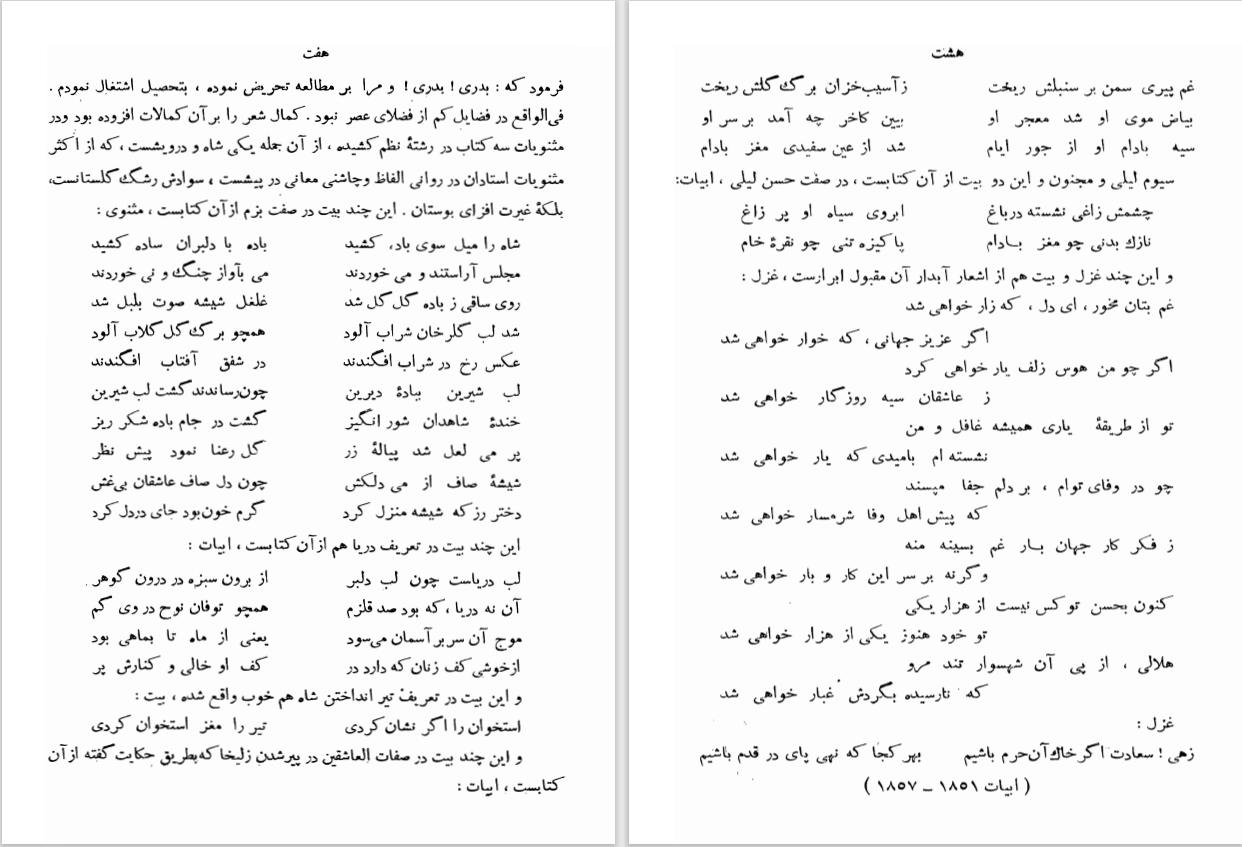 هفت
فرمود که : بدری ! بدری ! و مرا بر مطالعه تحریض نموده ، بتحصیل اشتغال نمودم .
فی‌الواقع در فضایل کم از فضلای عصر نبود . کمال شعر را بر آن کمالات افزوده بود ودر
مثنویات سه کتاب در رشتهٔ نظم کشیده ، از آن جمله یکی شاه و درویشست ، که از اکثر
مثنویات استادان در روانی الفاظ وچاشنی معانی در پیشست ، سوادش رشگ گلستانست،
بلکهٔ غیرت افزای بوستان . این چند بیت در صفت بزم ازآن کتابست ، مثنوی :
شاه را میل سوی باده کشید باده با دلبران ساده کشید
مجلس آراستند و می خوردند می بآواز چنگ و نی خوردند
روی ساقی ز باده گل گل شد غلغل شیشه صوت بلبل شد
شد لب گلرخان شراب آلود همچو برگ گل گلاب آلود
عکس رخ در شراب افگندند در شفق آفتاب افگندند
لب شیرین ببادهٔ دیرین چون‌رساندند گشت لب شیرین
خندهٔ شاهدان شور انگیز گشت در جام باده شکر ریز
پر می لعل شد پیالهٔ زر گل رعنا نمود پیش نظر
شیشهٔ صاف از می دلکش چون دل صاف عاشقان بی‌غش
دختر رز که شیشه منزل کرد گرم خون‌بود جای دردل کرد
این چند بیت در تعریف دریا هم ازآن کتابست ، ابیات :
لب دریاست چون لب دلبر از برون سبزه در درون گوهر
آن نه دریا ،که بود صد قلزم همچو توفان نوح در وی گم
موج آن سر بر آسمان می‌سود یعنی از ماه تا بماهی بود
ازخوشی کف زنان که دارد در کف او خالی و کنارش پر
و این بیت در تعریف تیر انداختن شاه هم خوب واقع شده ، بیت :
استخوان را اگر نشان کردی تیر را مغز استخوان کردی
و این چند بیت در صفات العاشقین در پیرشدن زلیخا که بطریق حکایت گفته از آن
کتابست ، ابیات :
هشت
غم پیری سمن بر سنبلش ریخت ز آسیب‌خزان برگ گلش ریخت
بیاض موی او شد معجر او ببین کاخر چه آمد بر سر او
سیه بادام او از جور ایام شد از عین سفیدی مغز بادام
سیوم لیلی و مجنون و این دو بیت از آن کتابست ، در صفت حسن لیلی ، ابیات:
چشمش زاغی نشسته درباغ ابروی سیاه او پر زاغ
نازك بدنی چو مغز بادام پاکیزه تنی چو نقرهٔ خام
و این چند غزل و بیت هم از اشعار آبدار آن مقبول ابرارست ، غزل :
غم بتان مخور ، ای دل ، که زار خواهی شد
اگر عزیز جهانی ، که خوار خواهی شد
اگر چو من هوس زلف یار خواهی کرد
ز عاشقان سیه روزگار خواهی شد
تو از طریقهٔ یاری همیشه غافل و من
نشسته ام بامیدی که یار خواهی شد
چو در وفای توام ، بر دلم جفا مپسند
که پیش اهل وفا شرمسار خواهی شد
ز فکر کار جهان بار غم بسینه منه
وگرنه بر سر این کار و بار خواهی شد
کنون بحسن تو کس نیست از هزار یکی
تو خود هنوز یکی از هزار خواهی شد
هلالی ، از پی آن شهسوار تند مرو
که نارسیده بگردش غبار خواهی شد
غزل :
زهی ! سعادت اگر خاك آن‌حرم باشیم بهر کجا که نهی پای در قدم باشیم
( ابیات ۱۸۵۱ ـ ۱۸۵۷ )